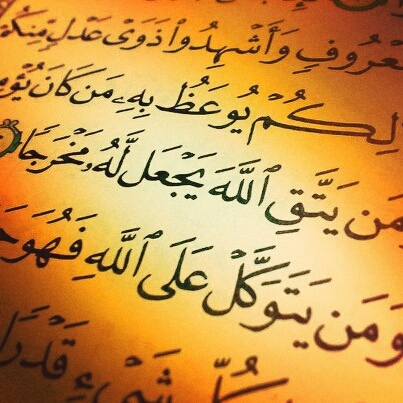 بِمَعْرُوفٍ وَأَشْهِدُوا۟ ذَوَىْ عَدْلٍ مِّنكُمْ
ذَٰلِكُمْ يُوعَظُ بِهِۦ مَن كَانَ يُؤْمِنُ
وَمَن يَتَّقِ ٱللَّهَ يَجْعَل لَّهُۥ مَخْرَجًا
وَمَن يَتَوَكَّلْ عَلَى ٱللَّهِ فَهُوَ
لِكُلِّ شَىْءٍ قَدْرًا